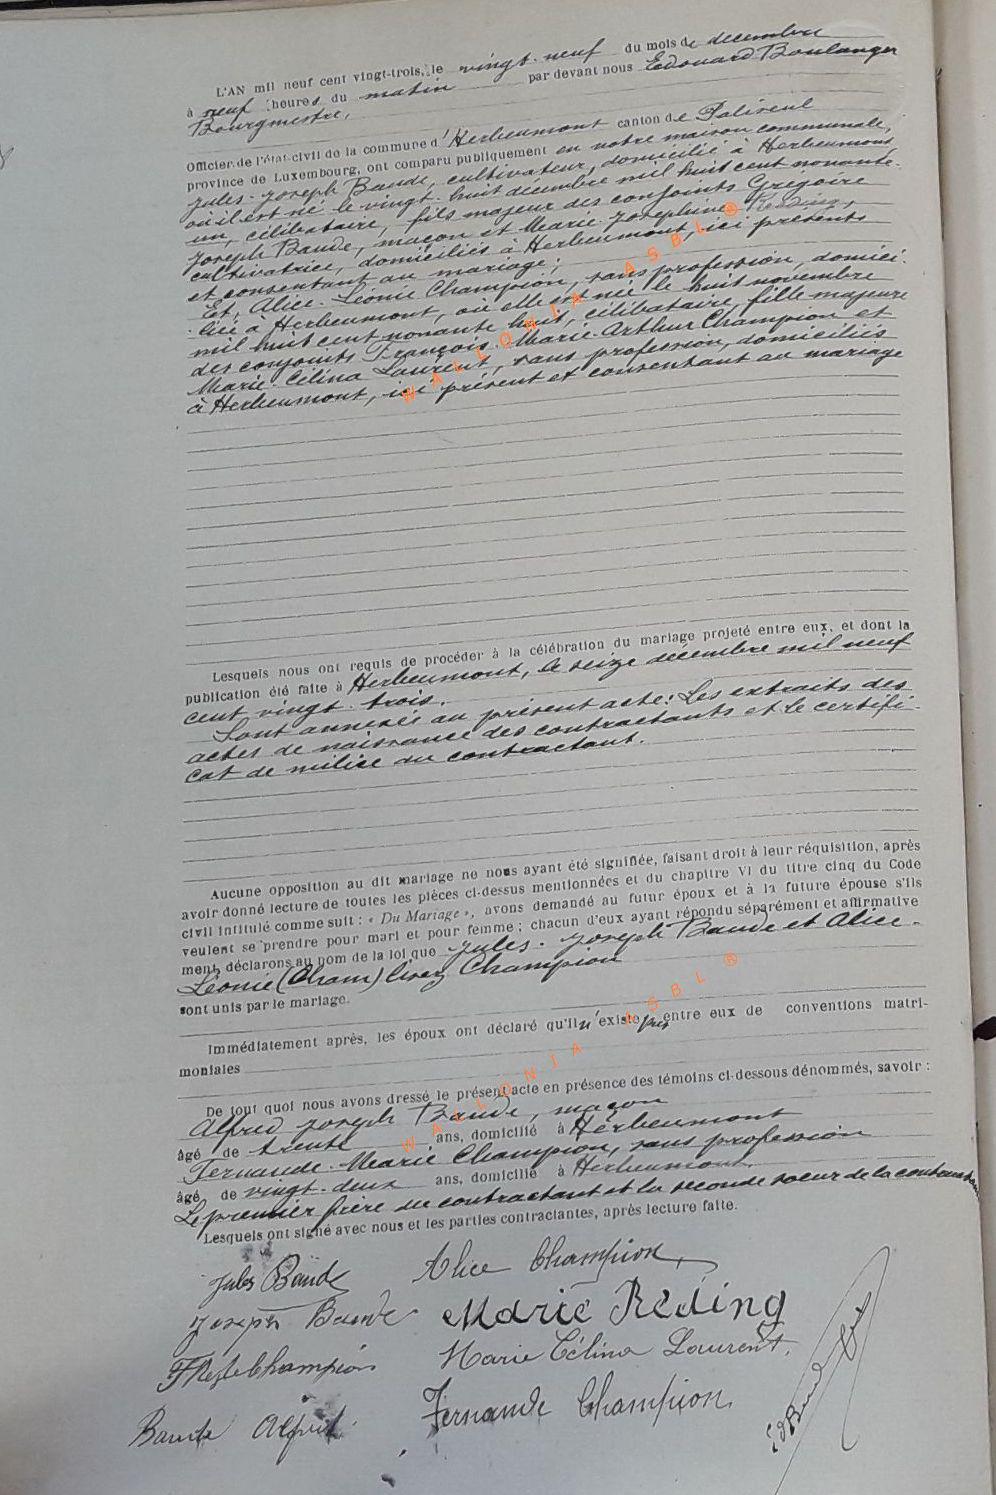 L'AN mil neuf cent vingt-trois, le vingt-neuf du mois de decembre
à neuf heures du matin par devant nous Edouard Boulanger
Bourgmestre,
Officier de l'état-civil de la commune d'Herbeumont canton de Paliseul
province de Luxembourg, ont comparu publiquement en notre maison communale,
Jules-Joseph Baude, cultivateur, domicilié à Herbeumont,
où il est né le vingt-huit décembre mil huit cent nonante-
un, célibataire, fils majeur des conjoints Grégoire
Joseph Baude, maçon et Marie-Josephine Reding,
cultivatrice, domiciliés à Herbeumont, ici présents
et consentant au mariage;
Et, Alice-Léonie Champion, sans profession, domici-
liée à Herbeumont, où elle est née le huit novembre
mil huit cent nonante huit, célibataire, fille majeure
des conjoints François-Marie-Arthur Champion et
Marie-Célina Laurent, sans profession, domiciliés
à Herbeumont, ici présent et consentant au mariage
Lesquels nous ont requis de procéder à la célébration du mariage projeté entre eux, et dont la
publication été faite à Herbeumont, le seize decembre mil neuf
cent vingt-trois.
Sont annexés au présent acte: Les extraits des
actes de naissance des contractants et le certifi-
cat de milice du contractant.
Aucune opposition au dit mariage ne nous ayant été signifiée, faisant droit à leur réquisition, après
avoir donné lecture de toutes les pièces ci-dessus mentionnées et du chapitre VI du titre cinq du Code
civil intitulé comme suit : « Du Mariage », avons demandé au futur époux et à la future épouse s'ils
veulent se prendre pour mari et pour femme ; chacun d'eux ayant répondu séparément et affirmative
ment, déclarons au nom de la loi que Jules-Joseph Baude et Alice-
Léonie (Cham) lisez Champion
sont unis par le mariage.
Immédiatement après, les époux ont déclaré qu'il n'existe pas entre eux de conventions matri-
moniales
De tout quoi nous avons dressé le présent acte en présence des témoins ci-dessous dénommés, savoir :
Alfred Joseph Baude, maçon
âgé de trente ans, domicilié à Herbeumont
Fernande-Marie Champion, sans profession
âgé de vingt-deux ans, domicilié à Herbeumont
Le premier frère du contractant et la seconde soeur de la contractante
Lesquels ont signé avec nous et les parties contractantes, après lecture faite.
Jules Baude Alice Champion
Joseph Baude Marie Réding
Champion Marie Célina Laurent
Baude Alfred Fernande Champion
WALLONIA ASBL ®
WALLONIA ASBL ®